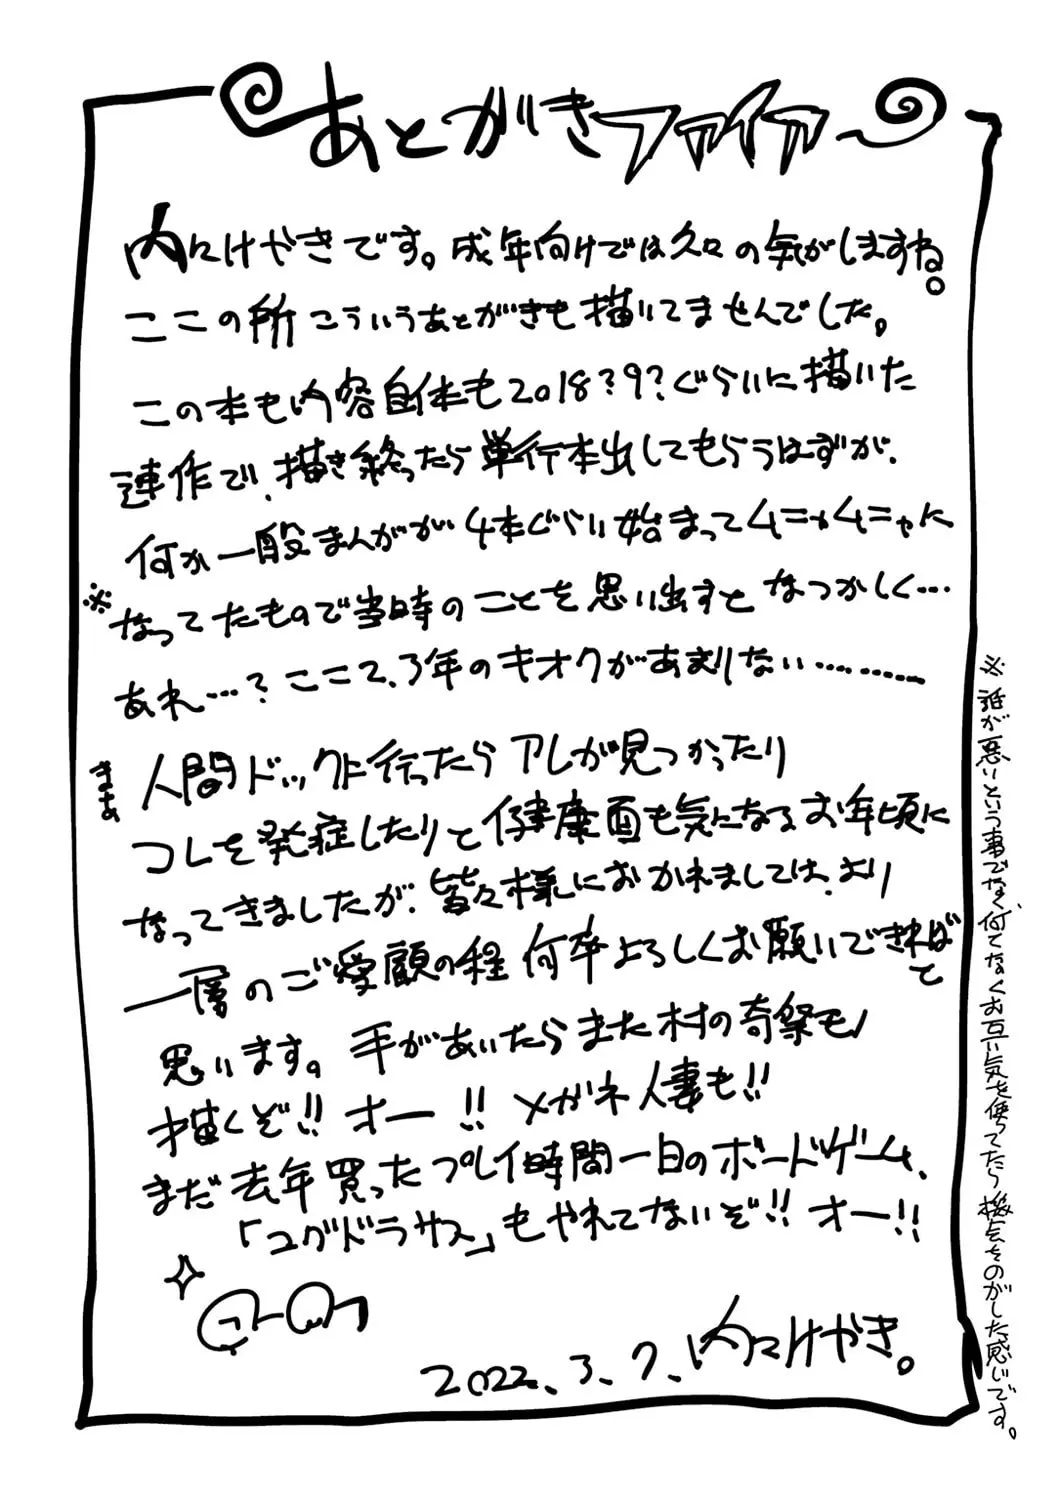 あとがきファイア
内々けやきです。成年向けでは久々の気がしますね。
ここの所こういうあとがきも描いてませんでした。
この本も内容自体も2018?9?ぐらいに描いた
連作で、描き終ったら単行本出してもらうはずが、
何か一般まんがが4本ぐらい始まってムニャムニャに
※なってたもので当時のことを思い出すとなつかしく…
あれ…?ここ2、3年のキオクがあまりない………
まあ
人間ドックに行ったらアレが見つかったり
コレを発症したりと健康面も気になるお年頃に
なってきましたが、皆々様におかれましては、より
一層のご愛顧の程何卒よろしくお願いできればと
思います。手があいたらまた村の奇祭モノ
描くぞ!!オー!!メガネ人妻も!!
まだ去年買ったプレイ時間一日のボードゲーム、
「ユグドラサス」もやれてないぞ!!オー!!
2022.3.7.内々けやき。
※誰が悪いという事でなく、何てなくお互い気を使ってたら機会をのがした感じです。